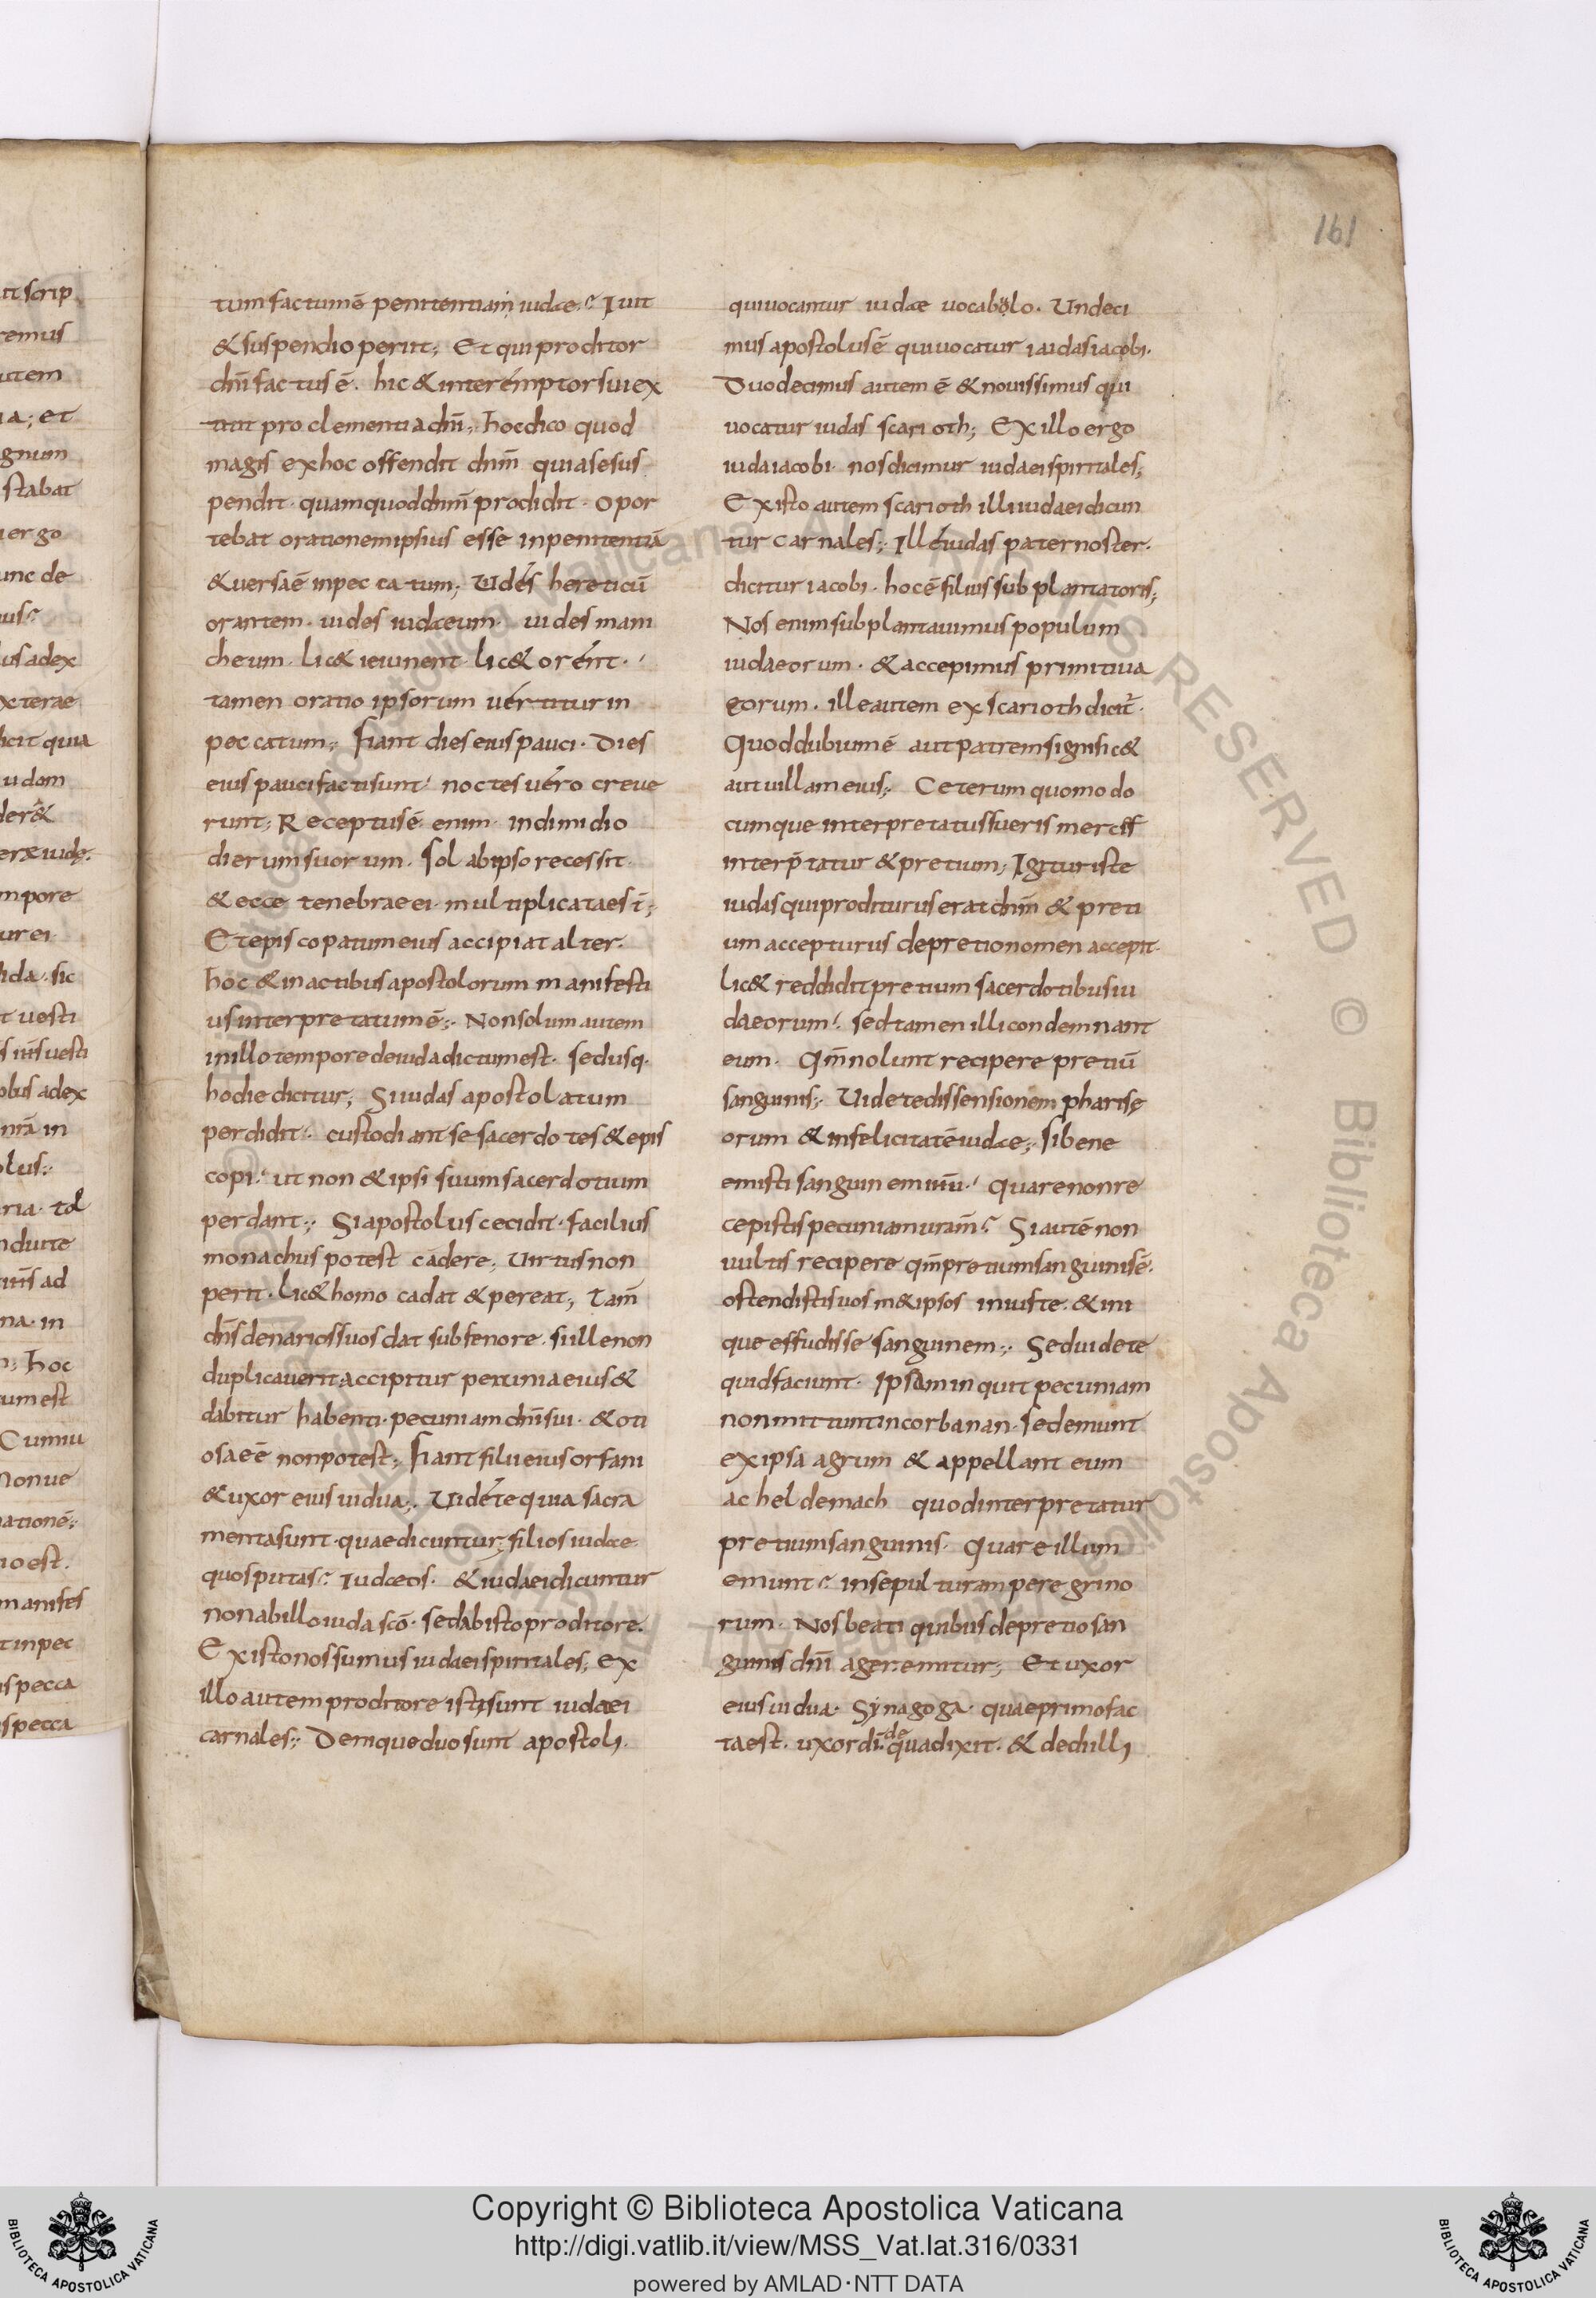 161
tum factum ē penitentiam iudae? Iuit
& suspendio periit; Et qui proditor
dn̄i factus ē. hic & interémptor sui ex
titit pro clementia dn̄i; hoc dico quod
magis ex hoc offendit dnm̄ quia se sus
pendit · quam quod dnm̄ prodidit · Opor
tebat orationem ipsius esse in penitentiā
& uersa ē in peccatum; Uidés hereticū
orantem · uides iudaeum · uides mani
cheum · lic& ieiunent · lic& orént ·
tamen oratio ipsorum uértitur in
peccatum; fiant dies eius pauci · Dies
eius pauci facti sunt · noctes uéro creue
runt; Receptus ē enim · in dimidio
dierum suorum · sol ab ipso recessit ·
& ecce tenebrae ei multiplicatae st̄;
Et episcopatum eius accipiat alter ·
hoc & in actibus apostolorum manifesti
us interpretatum ē; Non solum autem
in illo tempore de iuda dictum est · sed usq·
hodie dicitur; Si iudas apostolatum
perdidit · custodiant se sacerdotes & epis
copi · ut non & ipsi suum sacerdotium
perdant; Si apostolus cecidit · facilius
monachus potest cádere; Uirtus non
perit · lic& homo cadat & pereat; Tam̄
dn̄s denarios suos dat sub fenore · si ille non
duplicauerit accipitur pecunia eius &
dabitur habenti · pecuniam dn̄i sui · & oti
osa eē non potest; fiant filii eius orfani
& uxor eius uidua; Uidéte quia sacra
menta sunt · quae dicuntur; filios iudae
quos putas? Iudaeos · & iudaei dicuntur
non ab illo iuda scō · sed ab isto proditore ·
Ex isto nos sumus iudaei spiritales; ex
illo autem proditore isti sunt iudaei
carnales; Denique duo sunt apostoli ·
qui uocantur iudae uocabolo · Undeci
mus apostolus ē qui uocatur iaidas iacobi ·
Duodecimus autem ē & nouissimus qui
uocatur iudas scarioth; Ex illo ergo
iuda iacobi · nos dicimur iudaei spiritales;
Ex isto autem scarioth illi iudaei dicun
tur carnales; Ille iudas pater noster ·
dicitur iacobi · hoc ē filius subplantatoris;
Nos enim subplantauimus populum
iudaeorum · & accepimus primitiua
eorum · ille autem ex scarioth dicit̄ ·
Quod dubum ē aut patrem signific&
aut uillam eius; Ceterum quomodo
cumque interpretatus fueris merces
interp̄tatur & pretium; Igitur iste
iudas qui proditurus erat dnm̄ & preti
um accepturus de pretio nomen accepit ·
lic& reddidit pretium sacerdotibus iu
daeorum · sed tamen illi condemnant
eum · Qm̄ nolunt recipere pretiū
sanguinis; Uidete dissensionem pharisę
orum & infelicitatē iudae; si bene
emisti sanguinem iuu̅ · quare non re
cepistis pecuniam uram̄? Si autē non
uultis recipere qm̄ pretium sanguinis ē ·
ostendistis uos m& ipsos iniuste & ini
que effudisse sanguinem; Sed uidete
quid faciunt · Ipsam inquit pecuniam
non mittunt in corbanan · sed emunt
ex ipsa agrum & appellant eum
acheldemach quod interpretatur
pretium sanguinis · Quare illum
emunt? in sepulturam peregrino
rum · Nos beati quibus de pretio san
guinis dn̄i ager emitur; Et uxor
eius uidua · Synagoga · quae primo fac
ta est · uxor dī · de qua dixit · & dedi illi
Copyright © Biblioteca Apostolica Vaticana
http://digi.vatlib.it/view/MSS_Vat.lat.316/0331
powered by AMLAD·NTT DATA